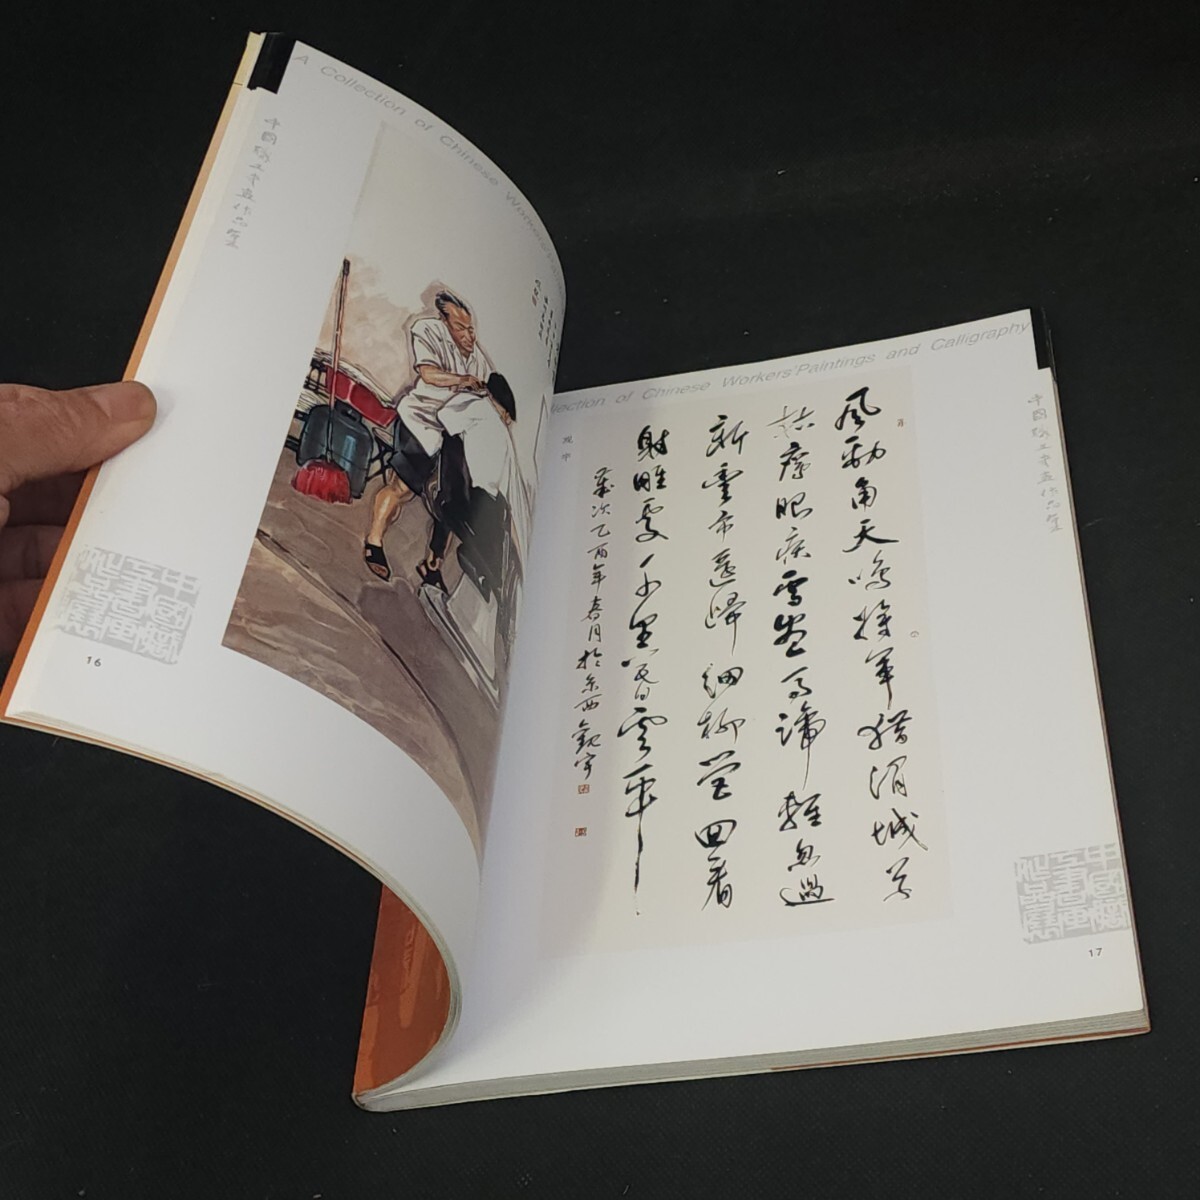 A Collection of Chinese Workers'
中国职工书画作品集
中國職工書畫作品集
16
llection of Chinese Workers'Paintings and Calligraphy
中国职工书画作品集
風勁角弓鳴將軍猎渭城草
枯鷹眼疾雪盡馬蹄輕忽過
新豐市還歸細柳營回看
射雕處千里暮雲平
歲次乙酉年春月於京西觀宇
中國職工書畫作品集
17